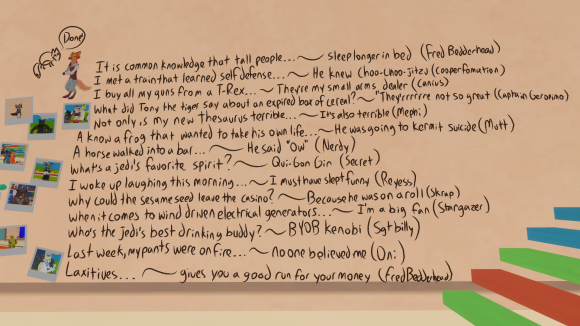 Done
It is common knowledge that tall people... ~ sleep longer in bed (Fred Bedderhead)
I met a train that learned self defense... ~ He knew Choo-Choo-Jitzu (Cooperfomation)
I buy all my guns from a T-Rex... ~ They're my small arms dealer (Canius)
What did Tony the tiger say about an expired box of cereal? ~ "They'rrrrrre not so great (Captain Geronimo)
Not only is my new thesaurus terrible... ~ It's also terrible (Mephi)
A know a frog that wanted to take his own life... ~ He was going to kermit suicide (Mutt)
A horse walked into a bar... ~ He said "Ow" (Nerdy)
What's a jedi's favorite spirit? ~ Qui-Gon Gin (Secret)
I woke up laughing this morning... ~ I must have slept funny (Reyess)
Why could the sesame seed leave the casino? ~ Because he was on a roll (Skrap)
When it comes to wind driven electrical generators... ~ I'm a big fan (Stargazer)
Who's the jedi's best drinking buddy? ~ BYOB kenobi (Sgt billy)
Last week, my pants were on fire... ~ no one believed me (Oni)
Laxitives... ~ gives you a good run for your money (Fred Bedderhead)